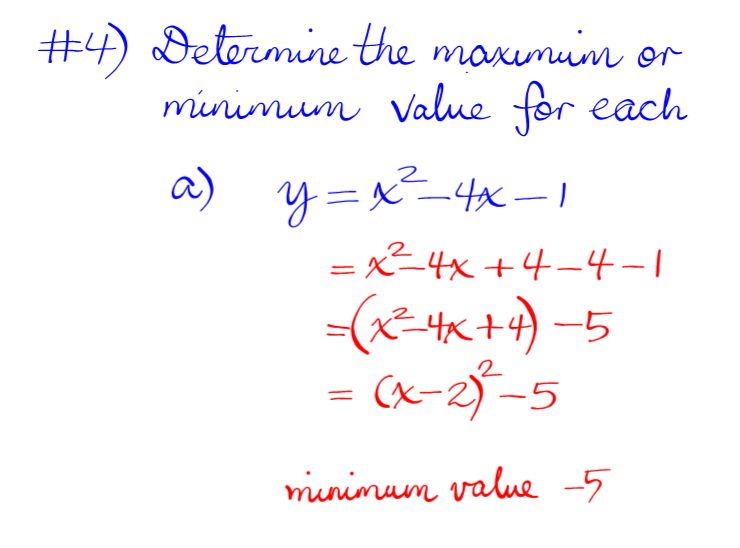 #4) Determine the maximum or
minimum value for each
a) y = x² - 4x - 1
= x² - 4x + 4 - 4 - 1
= (x² - 4x + 4) - 5
= (x - 2)² - 5
minimum value -5